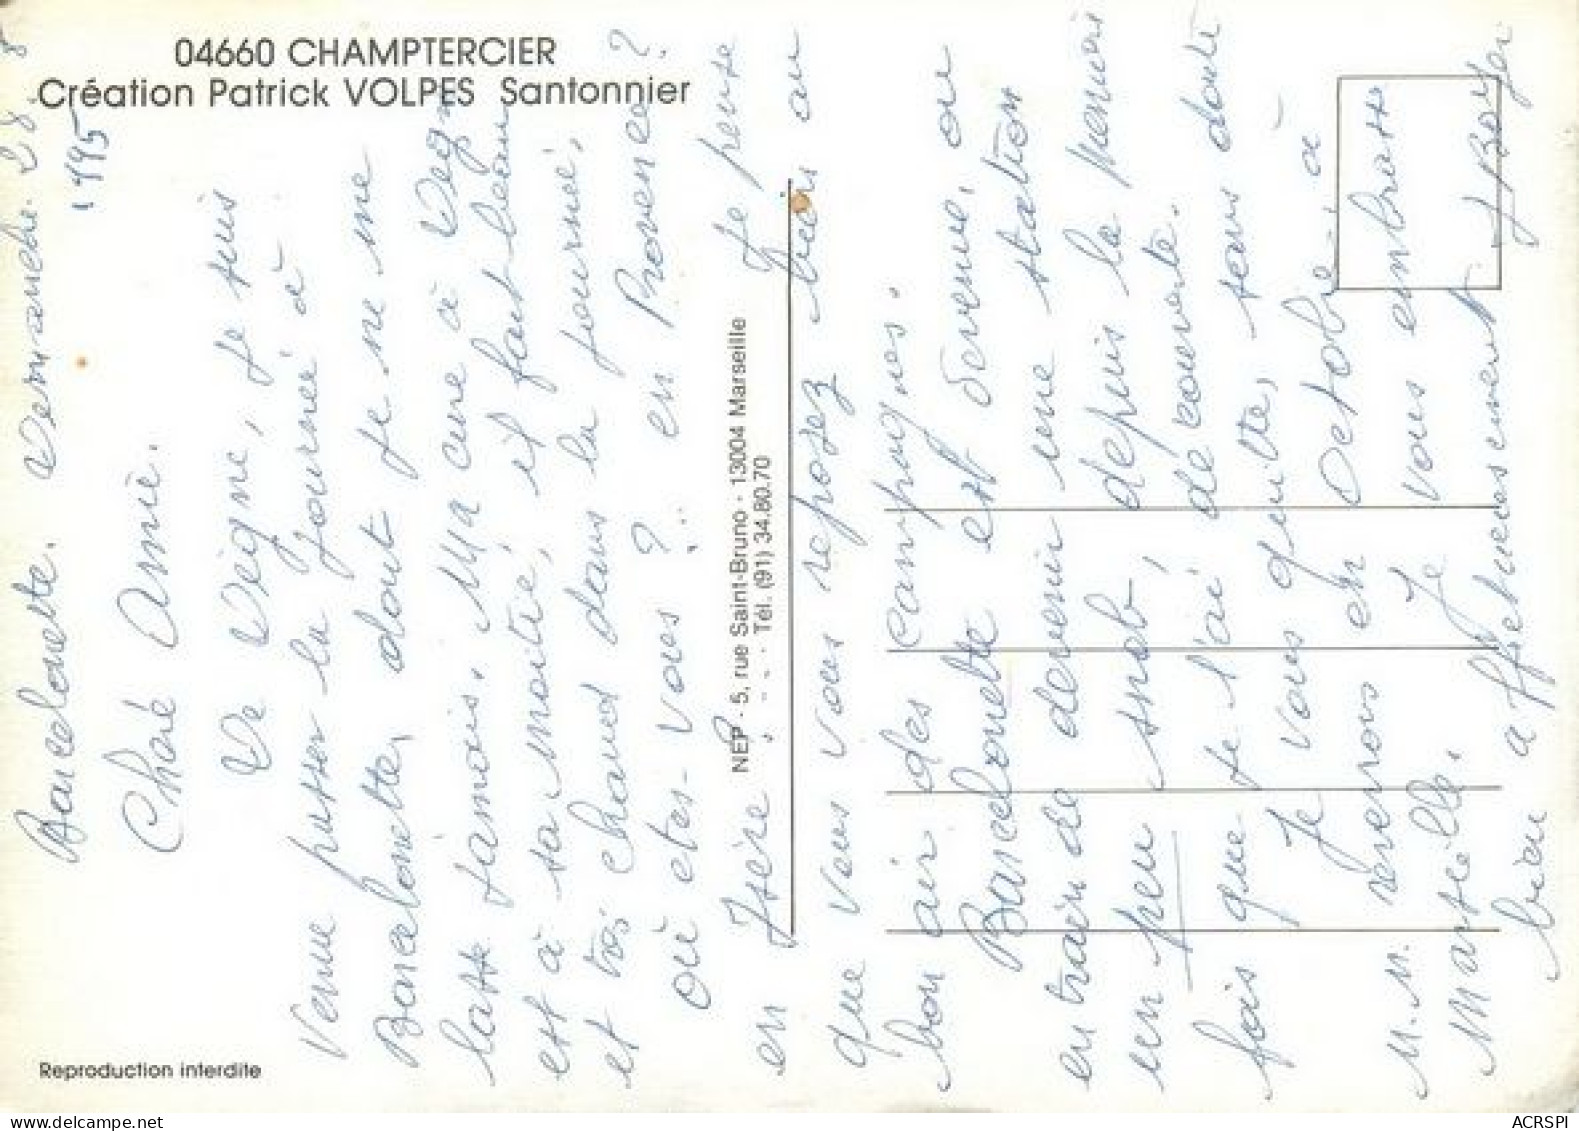 04660 CHAMPTERCIER
Création Patrick VOLPES Santonnier
Reproduction interdite
NEP - 5, rue Saint-Bruno - 13004 Marseille
Tél. (91) 34.80.70
Barcelonette. Dimanche. 28. 8
1995
Chère Amie.
De Digne, je suis
venue passer la journée à
Barcelonette, dont je ne me
lasse jamais. Ma cure à Digne
est à sa moitié, il fait beau
et très chaud dans la journée.
Où êtes-vous ? .. en Provence ?
en Isère .. .. Je pense
que vous vous reposez bien au
bon air des campagnes.
Barcelonette est devenue, ou
en train de devenir une station
un peu snob, depuis la première
fois que je l'ai découverte.
Je vous quitte, sans doute
M.M. reverrons en Octobre, à
Marseille. Je vous embrasse
bien affectueusement
ACRSPI